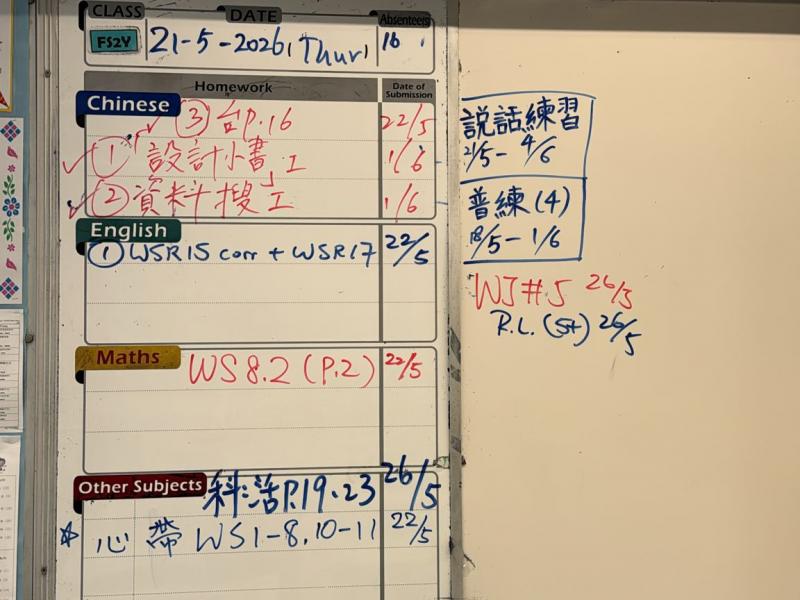 CLASS DATE Absentees
FS2Y 21-5-2026 (Thur) 16
Homework Date of Submission
Chinese
③ 台P.16 22/5
① 設計小書」工 1/6
② 資料搜工 1/6
English
① WSR15 corr + WSR17 22/5
Maths
WS 8.2 (P.2) 22/5
Other Subjects
科活P.19.23 26/5
心 帶 WS1-8,10-11 22/5
説話練習
21/5 - 4/6
普練(4)
18/5 - 1/6
WJ#5 26/5
R.L. (St) 26/5